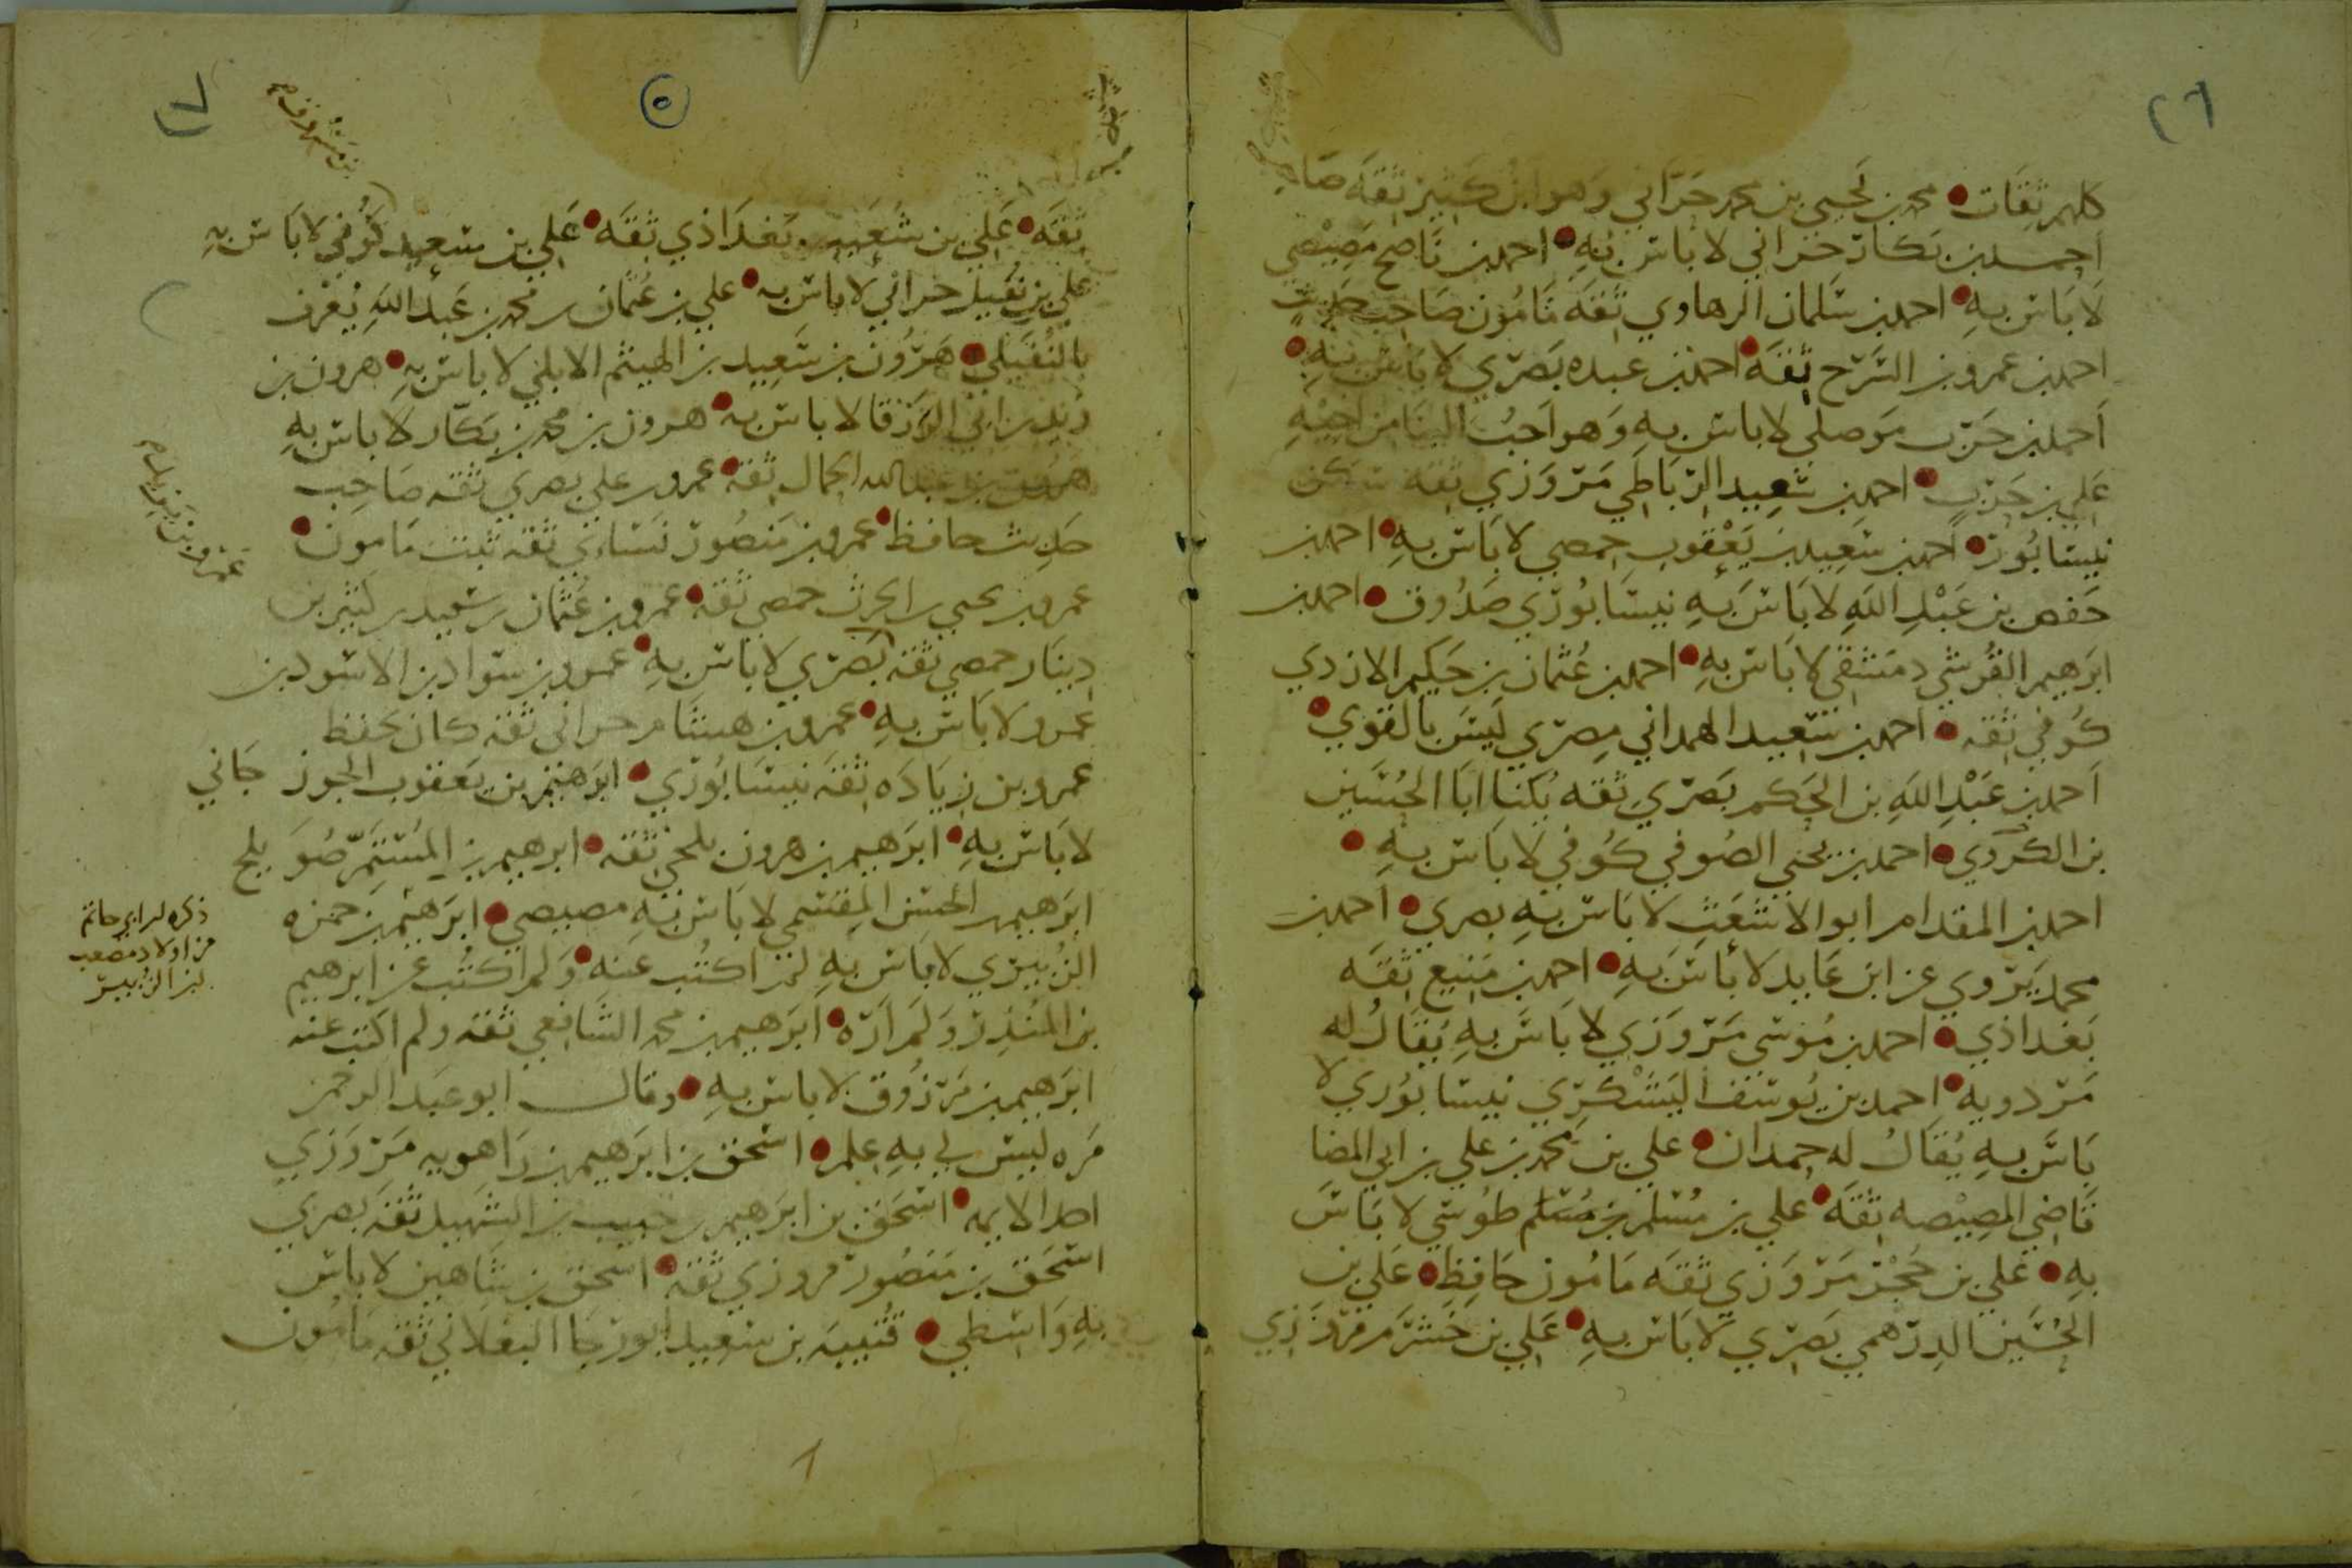 ٢٦
كلهم ثقات محمد بن يحيى بن محمد حراني وهو ابن كثير ثقة صاحب
احمد بن بكار حراني لا باس به احمد بن ناصح مصيصي
لا باس به احمد بن سلمان الرهاوي ثقة مامون صاحب حديث
احمد بن عمرو بن السرح ثقة احمد بن عبده بصري لا باس به
احمد بن حرب موصلي لا باس به وهو احب الينا من اخيه
علي بن حرب احمد بن سعيد الرباطي مروزي ثقة سكن
نيسابور احمد بن سعيد بن يعقوب حمصي لا باس به احمد بن
حفص بن عبد الله لا باس به نيسابوري صدوق احمد بن
ابرهيم القرشي دمشقي لا باس به احمد بن عثمان بن حكيم الازدي
كوفي ثقة احمد بن سعيد الهمداني مصري ليس بالقوي
احمد بن عبد الله بن الحكم بصري ثقة يكنا ابا الحسين
بن الكردي احمد بن يحيى الصوفي كوفي لا باس به
احمد بن المقدام ابو الاشعث لا باس به بصري احمد بن
محمد يروي عن ابن عايد لا باس به احمد بن منيع ثقة
بغداذي احمد بن موسى مروزي لا باس به يقال له
مردويه احمد بن يوسف اليشكري نيسابوري لا
باس به يقال له حمدان علي بن محمد بن علي بن ابي المضا
قاضي المصيصه ثقة علي بن مسلم بن مسلم طوسي لا باس
به علي بن حجر مروزي ثقة مامون حافظ علي بن
الحسين الدرهمي بصري لا باس به علي بن خشرم مروزي
٥
ثقة علي بن شعيب بغداذي ثقة علي بن سعيد كوفي لا باس به
علي بن نفيل حراني لا باس به علي بن عثمان بن محمد بن عبد الله يعرف
بالنفيلي هرون بن سعيد بن الهيثم الايلي لا باس به هرون بن
زيد بن ابي الزرقا لا باس به هرون بن محمد بن بكار لا باس به
هرون بن عبد الله الحمال ثقة عمرو بن علي بصري ثقة صاحب
حديث حافظ عمرو بن منصور نساءي ثقة ثبت مامون
عمرو بن يحيى بن الحرث حمصي ثقة عمرو بن عثمان بن سعيد بن كثير بن
دينار حمصي ثقة بصري لا باس به عمرو بن سواد بن الاسود بن
عمرو لا باس به عمرو بن هشام حراني ثقة كان يحفظ
عمرو بن زياده ثقة نيسابوري ابرهيم بن يعقوب الجوزجاني
لا باس به ابرهيم بن هرون بلخي ثقة ابرهيم بن المستمر صويلح
ابرهيم بن الحسن المقسمي لا باس به مصيصي ابرهيم بن حمزه
الزبيري لا باس به لم اكتب عنه ولم اكتب عن ابرهيم
بن المنذر ولم اره ابرهيم بن محمد الشافعي ثقة ولم اكتب عنه
ابرهيم بن مرزوق لا باس به وقال ابو عبد الرحمن
مره ليس لي به علم اسحق بن ابرهيم بن راهويه مروزي
احد الايمه اسحق بن ابرهيم بن حبيب بن الشهيد ثقة بصري
اسحق بن منصور مروزي ثقة اسحق بن شاهين لا باس
به واسطي قتيبه بن سعيد ابو رجا البغلاني ثقة مامون
ذكره ابن ابي حاتم
من اولاد مصعب
بن الزبير